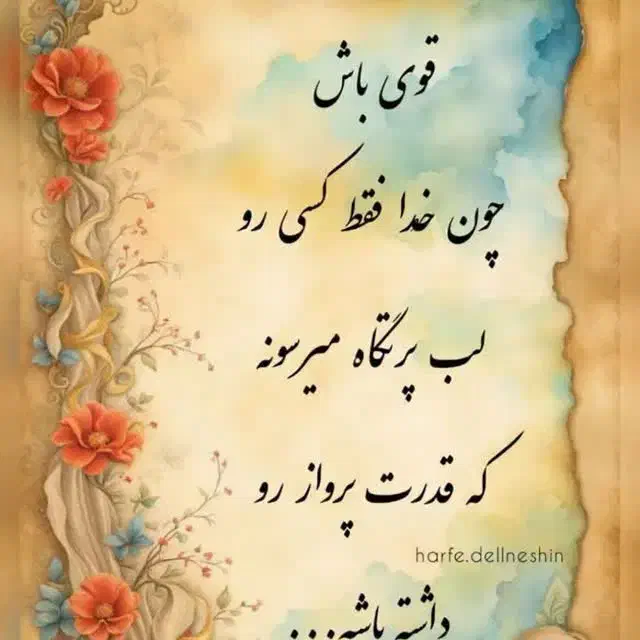 قوی باش
چون خدا فقط کسی رو
لب پرتگاه میرسونه
که قدرت پرواز رو
harfe.dellneshin
داشته باشه...